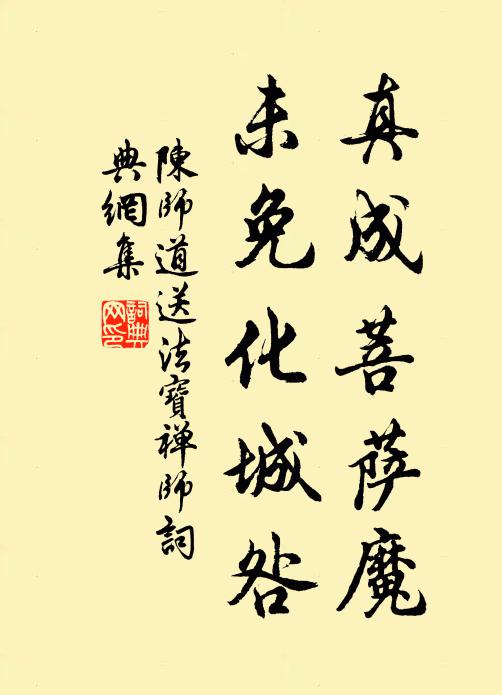 真成菩萨魔
未免化城咎
陳師道送法寶禅師詞
典網集
詞典
网印